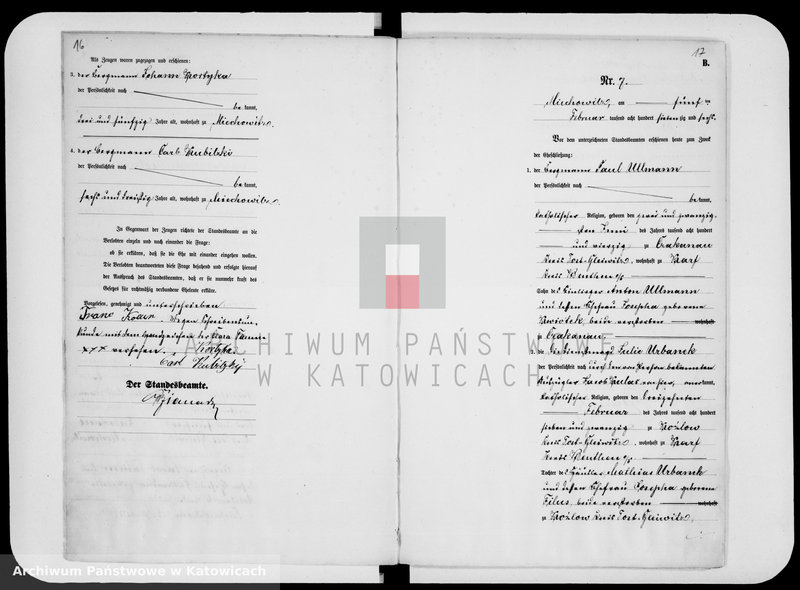 16
Als Zeugen waren zugezogen und erschienen:
3. der Bergmann Johann Kostyka
der Persönlichkeit nach
be kannt,
drei und fünfzig Jahre alt, wohnhaft zu Miechowitz.
4. der Bergmann Carl Kubitzki
der Persönlichkeit nach
be kannt,
sechs und dreißig Jahre alt, wohnhaft zu Miechowitz.
In Gegenwart der Zeugen richtete der Standesbeamte an die
Verlobten einzeln und nach einander die Frage:
ob sie erklären, daß sie die Ehe mit einander eingehen wollen.
Die Verlobten beantworteten diese Frage bejahend und erfolgte hierauf
der Ausspruch des Standesbeamten, daß er sie nunmehr kraft des
Gesetzes für rechtmäßig verbundene Eheleute erkläre.
Vorgelesen, genehmigt und unterschrieben
Franc wegen Schreibensun-
kunde mit dem Handzeichen
xxx versehen.
Carl Kubitzky
Der Standesbeamte.
17
B.
Nr. 7.
Miechowitz, am fünf ten
Februar tausend acht hundert siebenzig und sechs.
Vor dem unterzeichneten Standesbeamten erschienen heute zum Zweck
der Eheschließung:
1. der Bergmann Paul Ullmann
der Persönlichkeit nach
be kannt,
katholischer Religion, geboren den zwei und zwanzig-
sten Juni des Jahres tausend acht hundert
und vierzig zu Czakanau
Kreis Tost-Gleiwitz, wohnhaft zu Karf
Kreis Beuthen o/s
Sohn des Einlieger Anton Ullmann
und dessen Ehefrau Josepha geborene
Kwiotek, beide verstorben wohnhaft
zu Czakanau.
2. die Dienstmagd Julie Urbanek
der Persönlichkeit nach durch den von Person bekannten
Auszügler Jacob von hier, aner kannt,
katholischer Religion, geboren den dreizehnten
Februar des Jahres tausend acht hundert
sieben und zwanzig zu Kozlow
Kreis Tost-Gleiwitz, wohnhaft zu Karf
Kreis Beuthen o/s.
Tochter des Häusler Mathias Urbanek
und dessen Ehefrau Josepha geborene
Filus, beide verstorben wohnhaft
zu Kozlow Kreis Tost-Gleiwitz.
ARCHIWUM PAŃSTWOWE
W KATOWICACH
Archiwum Państwowe w Katowicach